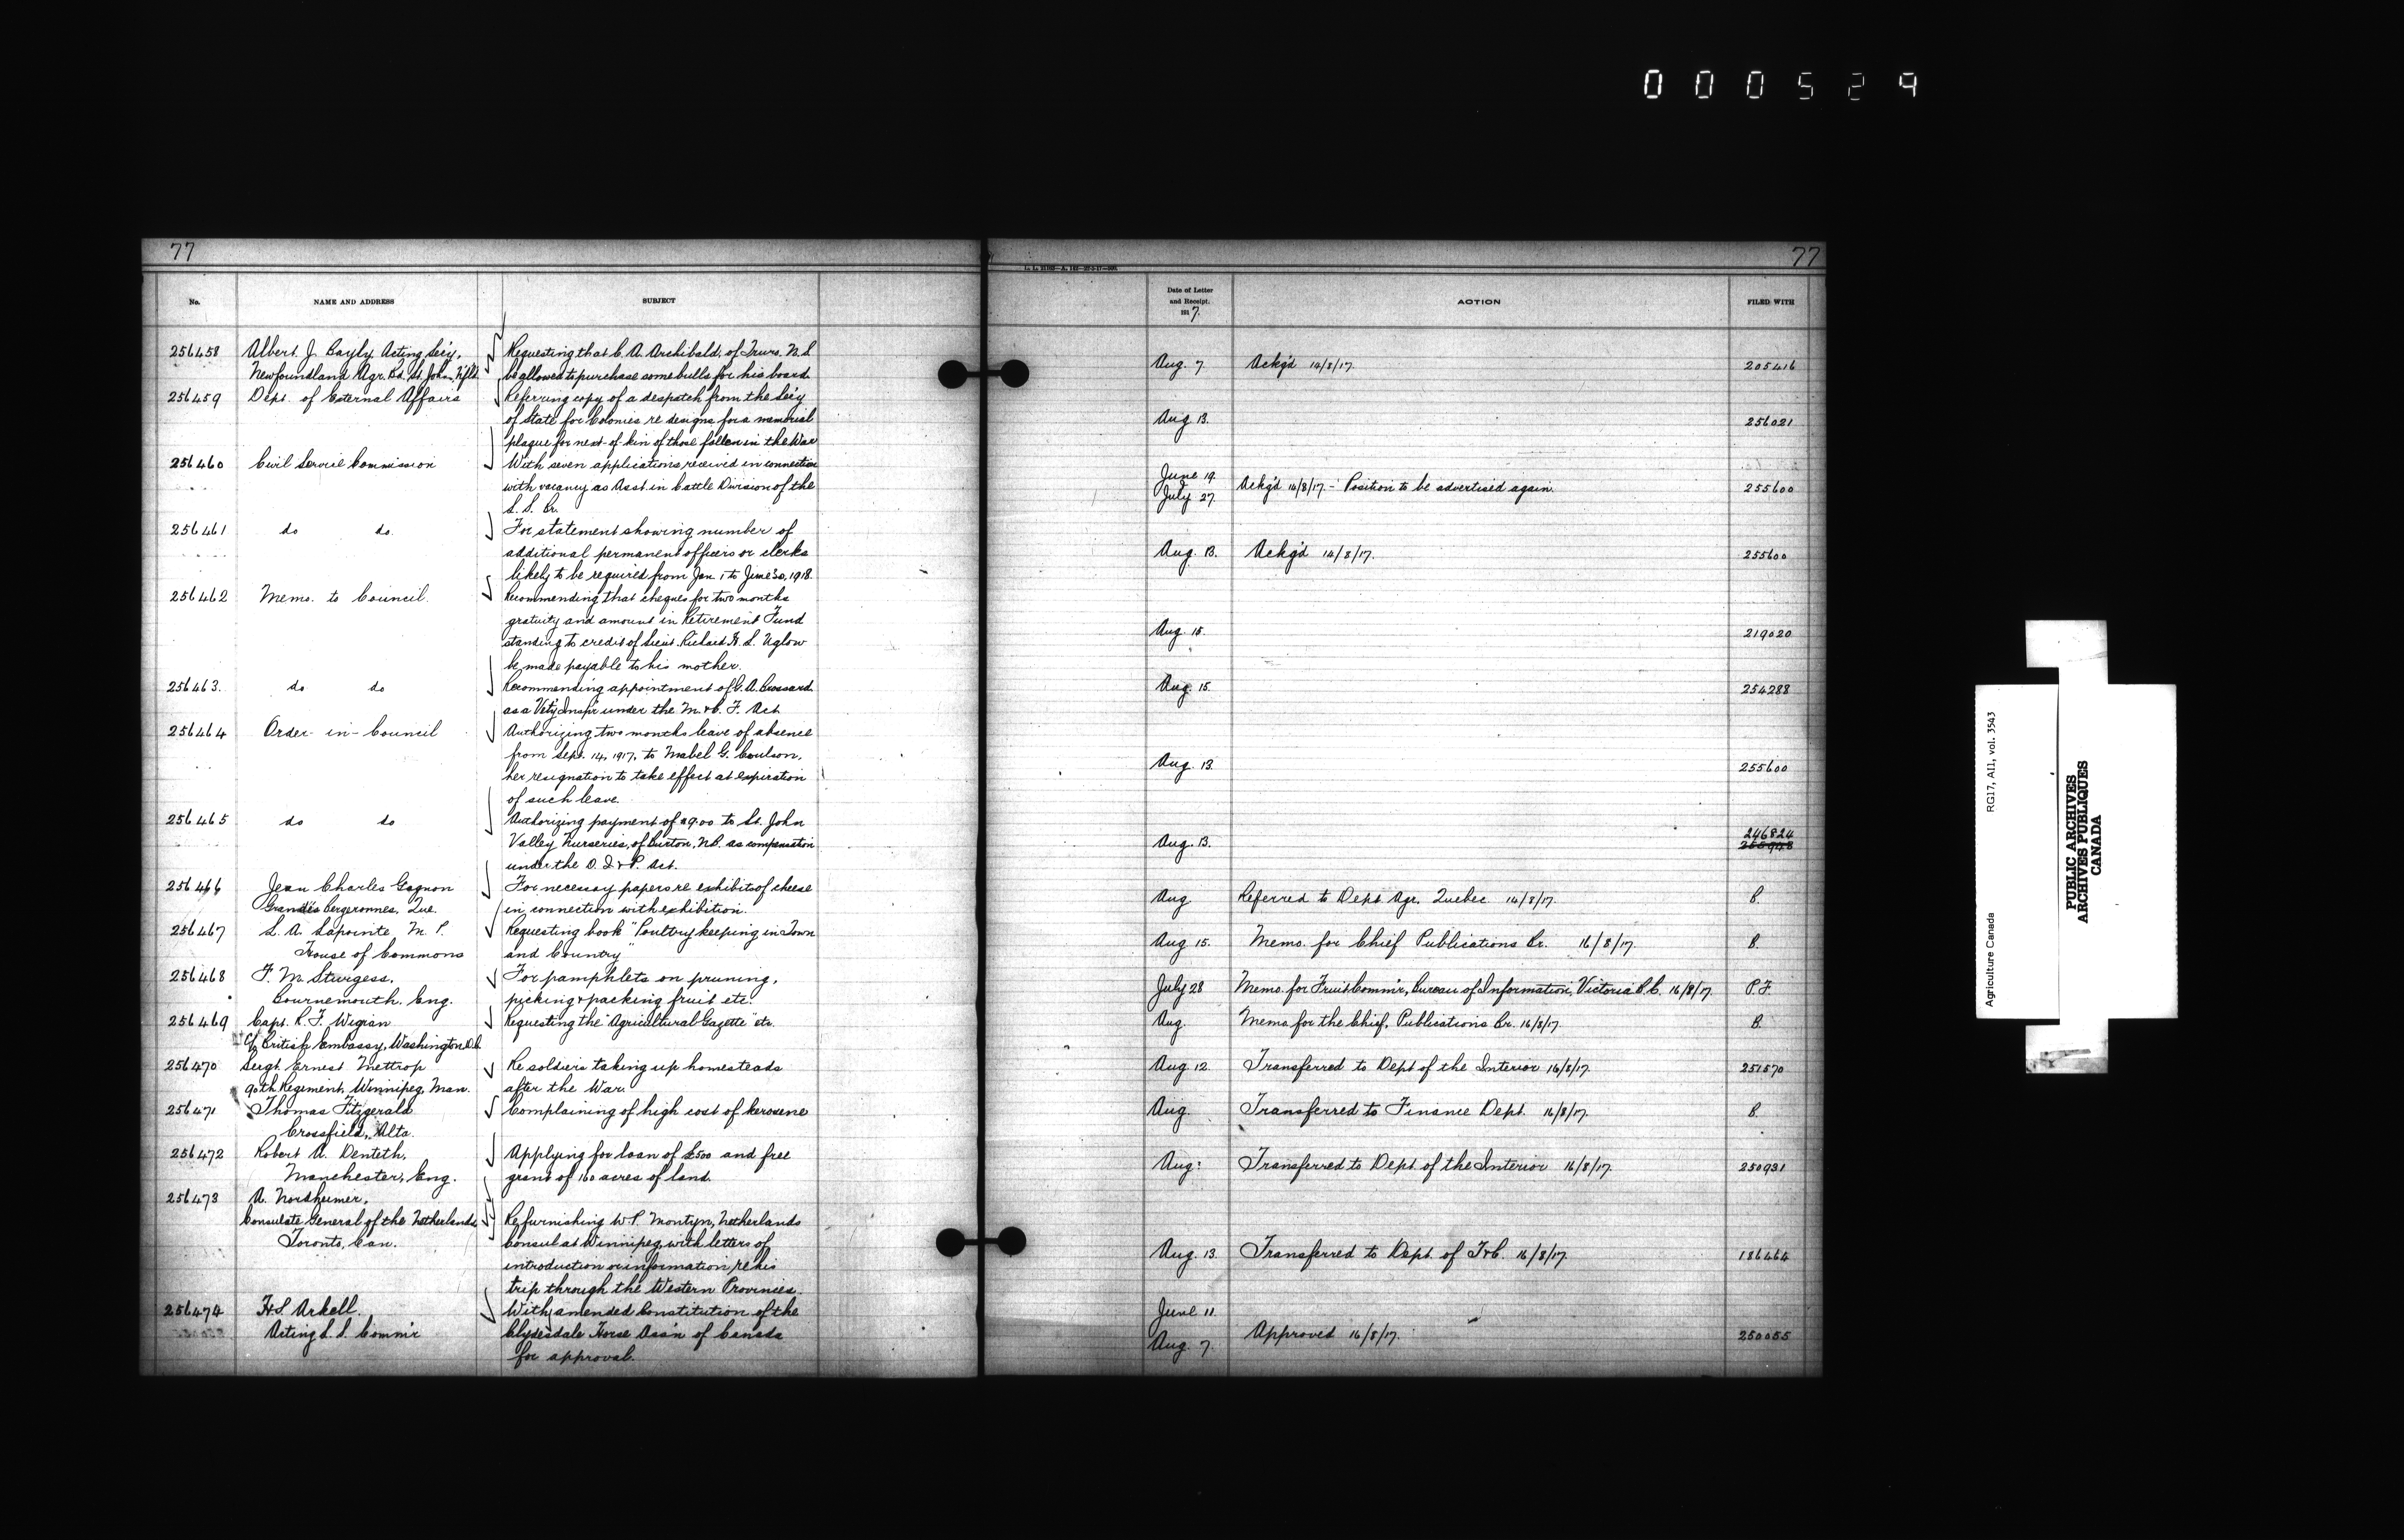 000529
77
No.
NAME AND ADDRESS
SUBJECT
256458
Albert J. Bayly, Acting Sec'y,
Newfoundland Agr. Bd. St. John, Nfld.
Requesting that C. A. Archibald, of Truro, N.S.
be allowed to purchase some bulls for his board.
256459
Dept. of External Affairs
Referring copy of a despatch from the Sec'y
of State for Colonies re designs for a memorial
plaque for next-of-kin of those fallen in the War
256460
Civil Service Commission
With seven applications received in connection
with vacancy as Asst. in Cattle Division of the
L. S. Br.
256461
do do.
For statement showing number of
additional permanent officers or clerks
likely to be required from Jan. 1 to June 30, 1918.
256462
Memo. to Council.
Recommending that cheques for two months
gratuity and amount in Retirement Fund
standing to credit of Lieut. Richard H. S. Uglow
be made payable to his mother.
256463.
do do
Recommending appointment of G. A. Brossard
as a Vet'y Insp'r under the M. & C. F. Act
256464
Order-in-Council
Authorizing two months leave of absence
from Sept. 14, 1917, to Mabel G. Coulson,
her resignation to take effect at expiration
of such leave.
256465
do do
Authorizing payment of $9.00 to St. John
Valley Nurseries, of Burton, N.B. as compensation
under the D. I. & P. Act.
256466
Jean Charles Gagnon
Grandes Bergeronnes, Que.
For necessary papers re exhibits of cheese
in connection with exhibition.
256467
L. A. Lapointe, M. P.
House of Commons
Requesting book "Poultry keeping in Town
and Country"
256468
F. M. Sturgess,
Bournemouth, Eng.
For pamphlets on pruning,
picking & packing fruit etc.
256469
Capt. R. F. Wigran
c/o British Embassy, Washington D.C.
Requesting the "Agricultural Gazette" etc.
256470
Sergt. Ernest Mettrop
90th Regiment, Winnipeg, Man.
Re soldiers taking up homesteads
after the War.
256471
Thomas Fitzgerald
Crossfield, Alta.
Complaining of high cost of kerosene
256472
Robert A. Denteth,
Manchester, Eng.
Applying for loan of £500 and free
grant of 160 acres of land.
256473
A. Nordheimer,
Consulate General of the Netherlands
Toronto, Can.
Re furnishing W. P. Montyn, Netherlands
Consul at Winnipeg, with letters of
introduction or information re his
trip through the Western Provinces.
256474
H.S. Arkell.
Acting L. S. Comm'r
With amended Constitution of the
Clydesdale Horse Ass'n of Canada
for approval.
77
Date of Letter
and Receipt.
1917.
ACTION
FILED WITH
Aug. 7. Ackg'd 14/8/17. 205416
Aug 13. 256021
June 19.
July 27. Ackg'd 14/8/17. - Position to be advertised again. 255600
Aug. 13. Ackg'd 14/8/17. 255600
Aug. 15. 219020
Aug. 15. 254288
Aug. 13. 255600
246824
Aug. 13. 255948
Aug Referred to Dept. Agr. Quebec 14/8/17. B.
Aug 15. Memo. for Chief Publications Br. 16/8/17. B.
July 28 Memo. for Fruit Comm'r, Bureau of Information, Victoria B.C. 16/8/17. P.F.
Aug. Memo for the Chief, Publications Br. 16/8/17. B.
Aug. 12. Transferred to Dept of the Interior 16/8/17. 251570
Aug. Transferred to Finance Dept. 16/8/17. B
Aug. Transferred to Dept. of the Interior 16/8/17. 250931
Aug. 13. Transferred to Dept. of T&C. 16/8/17. 186464
June 11.
Aug. 7. Approved 16/8/17. 250055
Agriculture Canada
RG17, AII, vol. 3543
PUBLIC ARCHIVES
ARCHIVES PUBLIQUES
CANADA